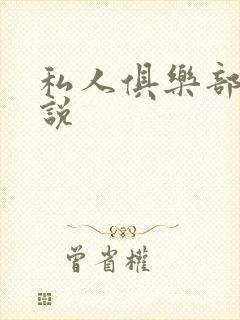 私人俱樂部
說
曾省權